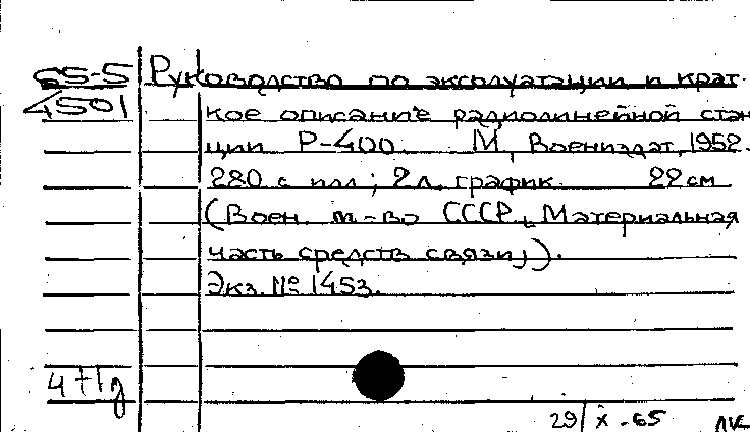 65-5 Руководство по эксплуатации и крат-
4501 кое описание радиолинейной стан
ции Р-400. М, Воениздат, 1952.
280 с илл; 2л. график. 22 см
(Воен. м-во СССР, Материальная
часть средств связи).
Экз. № 1453.
4+1д
29/X-65